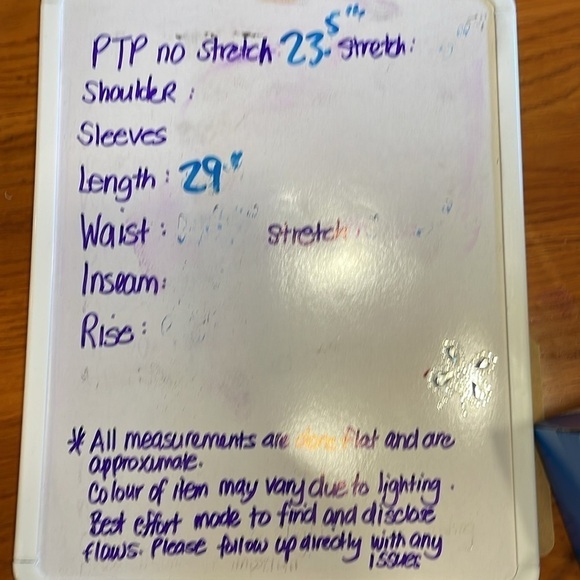 PTP no stretch 23.5" stretch:
Shoulder:
Sleeves
Length: 29"
Waist: stretch
Inseam:
Rise:
* All measurements are done flat and are
approximate.
Colour of item may vary due to lighting.
Best effort made to find and disclose
flaws. Please follow up directly with any
issues